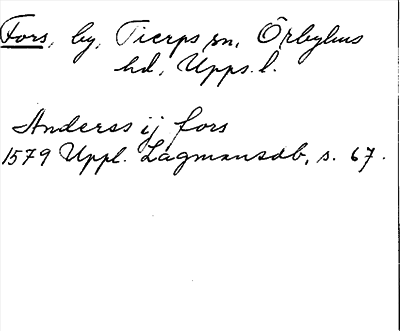 Fors, by, Tierps sn, Örbyhus
hd, Upps. l.
Anderss ij fors
1579 Uppl. Lagmansdb, s. 67.